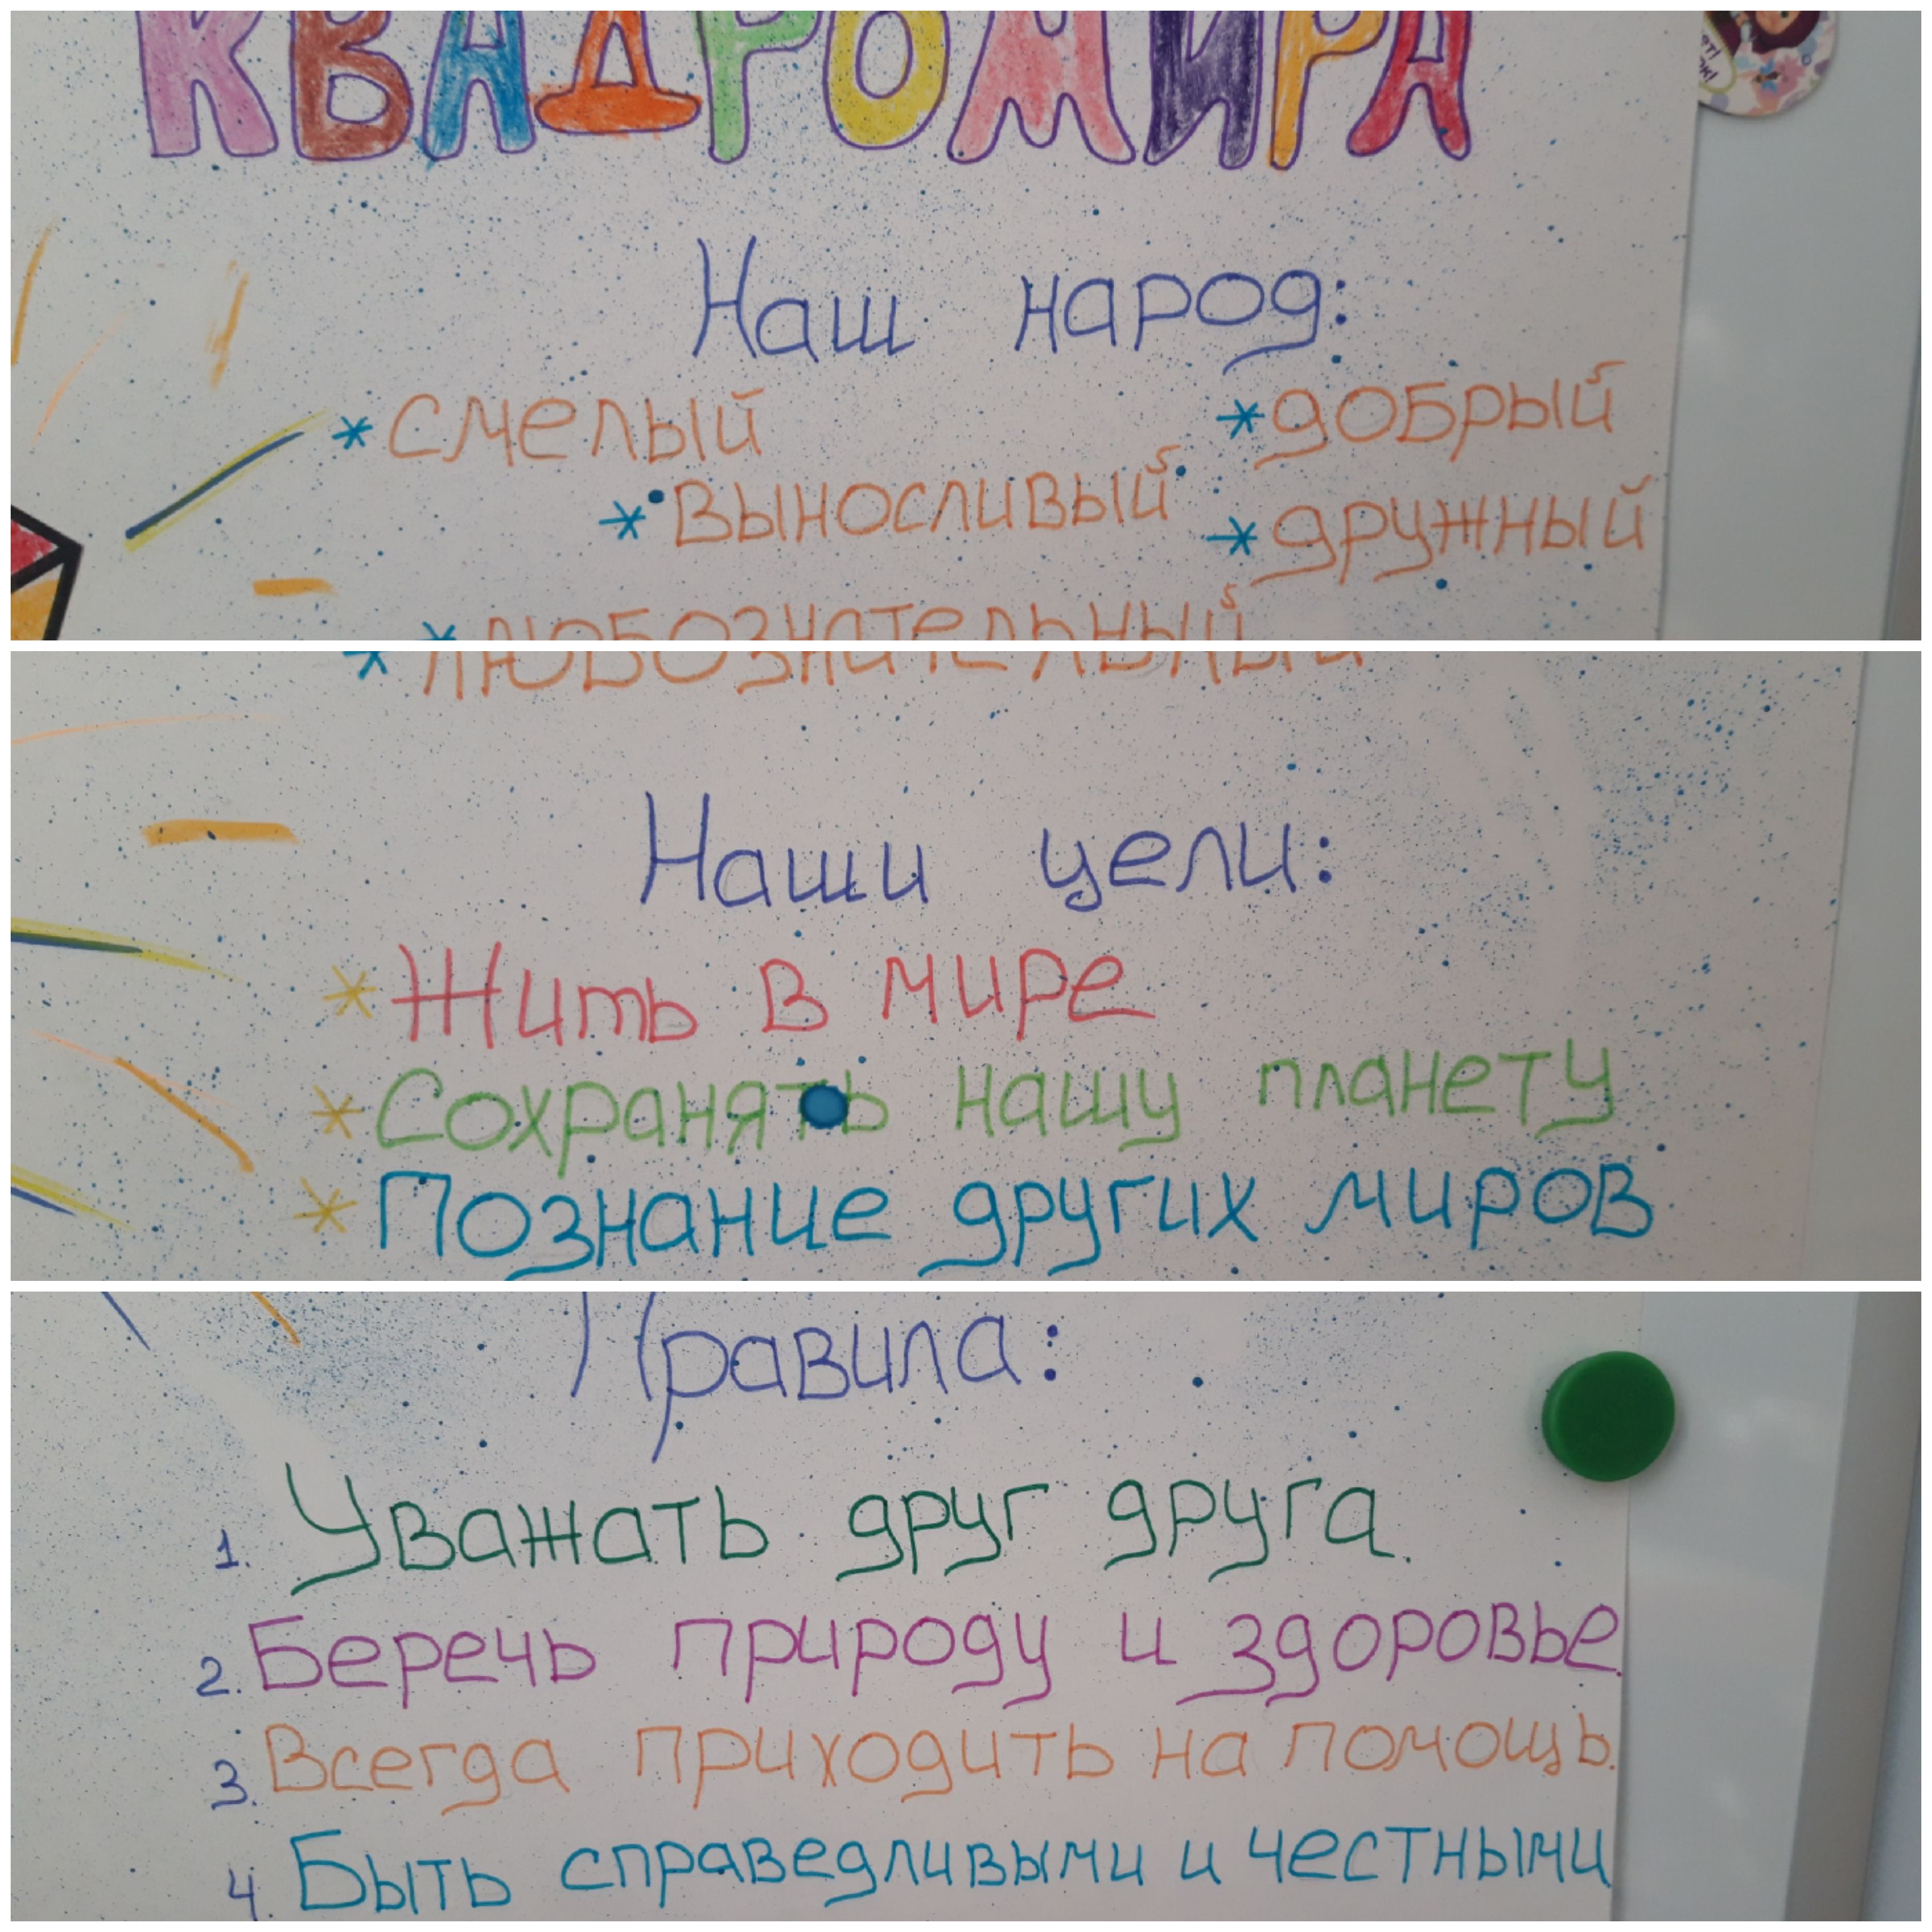 КВАДРОМИРА
Наш народ:
* смелый
* добрый
* выносливый
* дружный
* любознательный
* любознательный
Наши цели:
* Жить в мире
* Сохранять нашу планету
* Познание других миров
Правила:
1. Уважать друг друга.
2. Беречь природу и здоровье.
3. Всегда приходить на помощь.
4. Быть справедливыми и честными